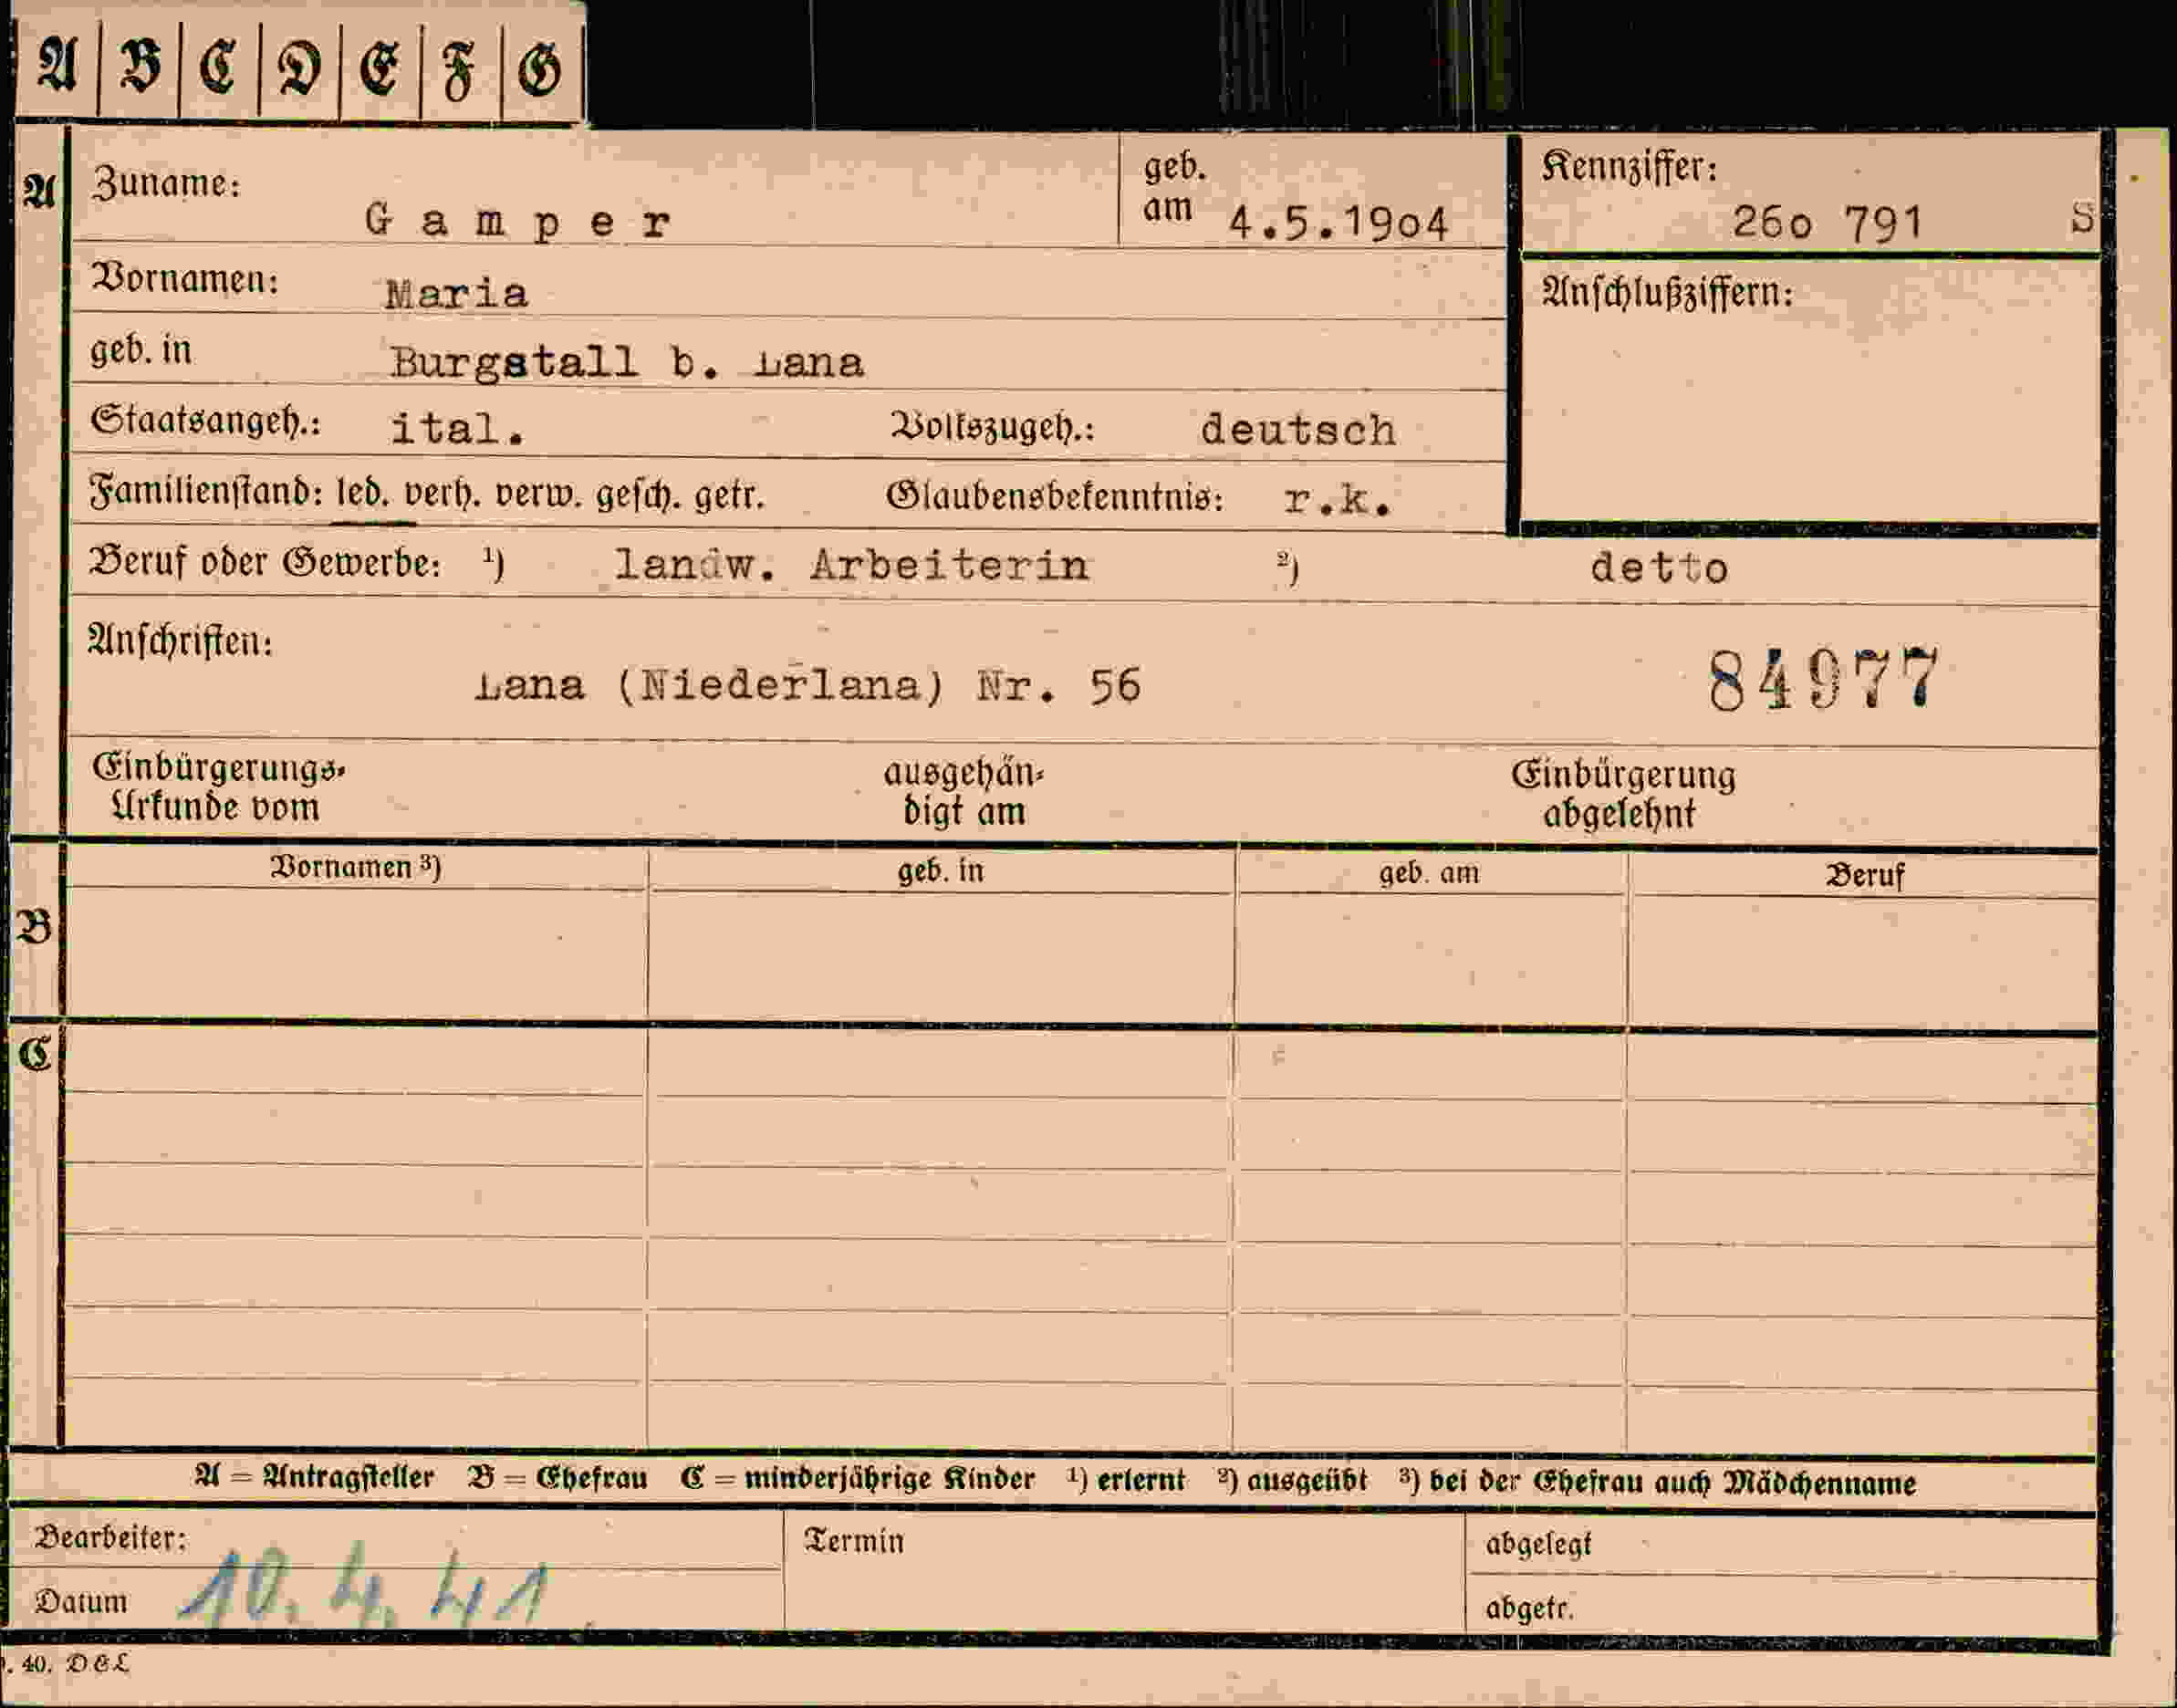 A B C D E F G
A Zuname: Gamper geb. am 4.5.19o4 Kennziffer: 26o 791 S
Vornamen: Maria Anschlußziffern:
geb. in Burgstall b. Lana
Staatsangeh.: ital. Volkszugeh.: deutsch
Familienstand: led. verh. verw. gesch. getr. Glaubensbekenntnis: r.k.
Beruf oder Gewerbe: ¹) landw. Arbeiterin ²) detto
Anschriften:
Lana (Niederlana) Nr. 56 84977
Einbürgerungs- ausgehän- Einbürgerung
Urkunde vom digt am abgelehnt
Vornamen ³) geb. in geb. am Beruf
B
C
A = Antragsteller B = Ehefrau C = minderjährige Kinder ¹) erlernt ²) ausgeübt ³) bei der Ehefrau auch Mädchenname
Bearbeiter: Termin abgelegt
Datum 10.4.41 abgetr.
. 40. DGL